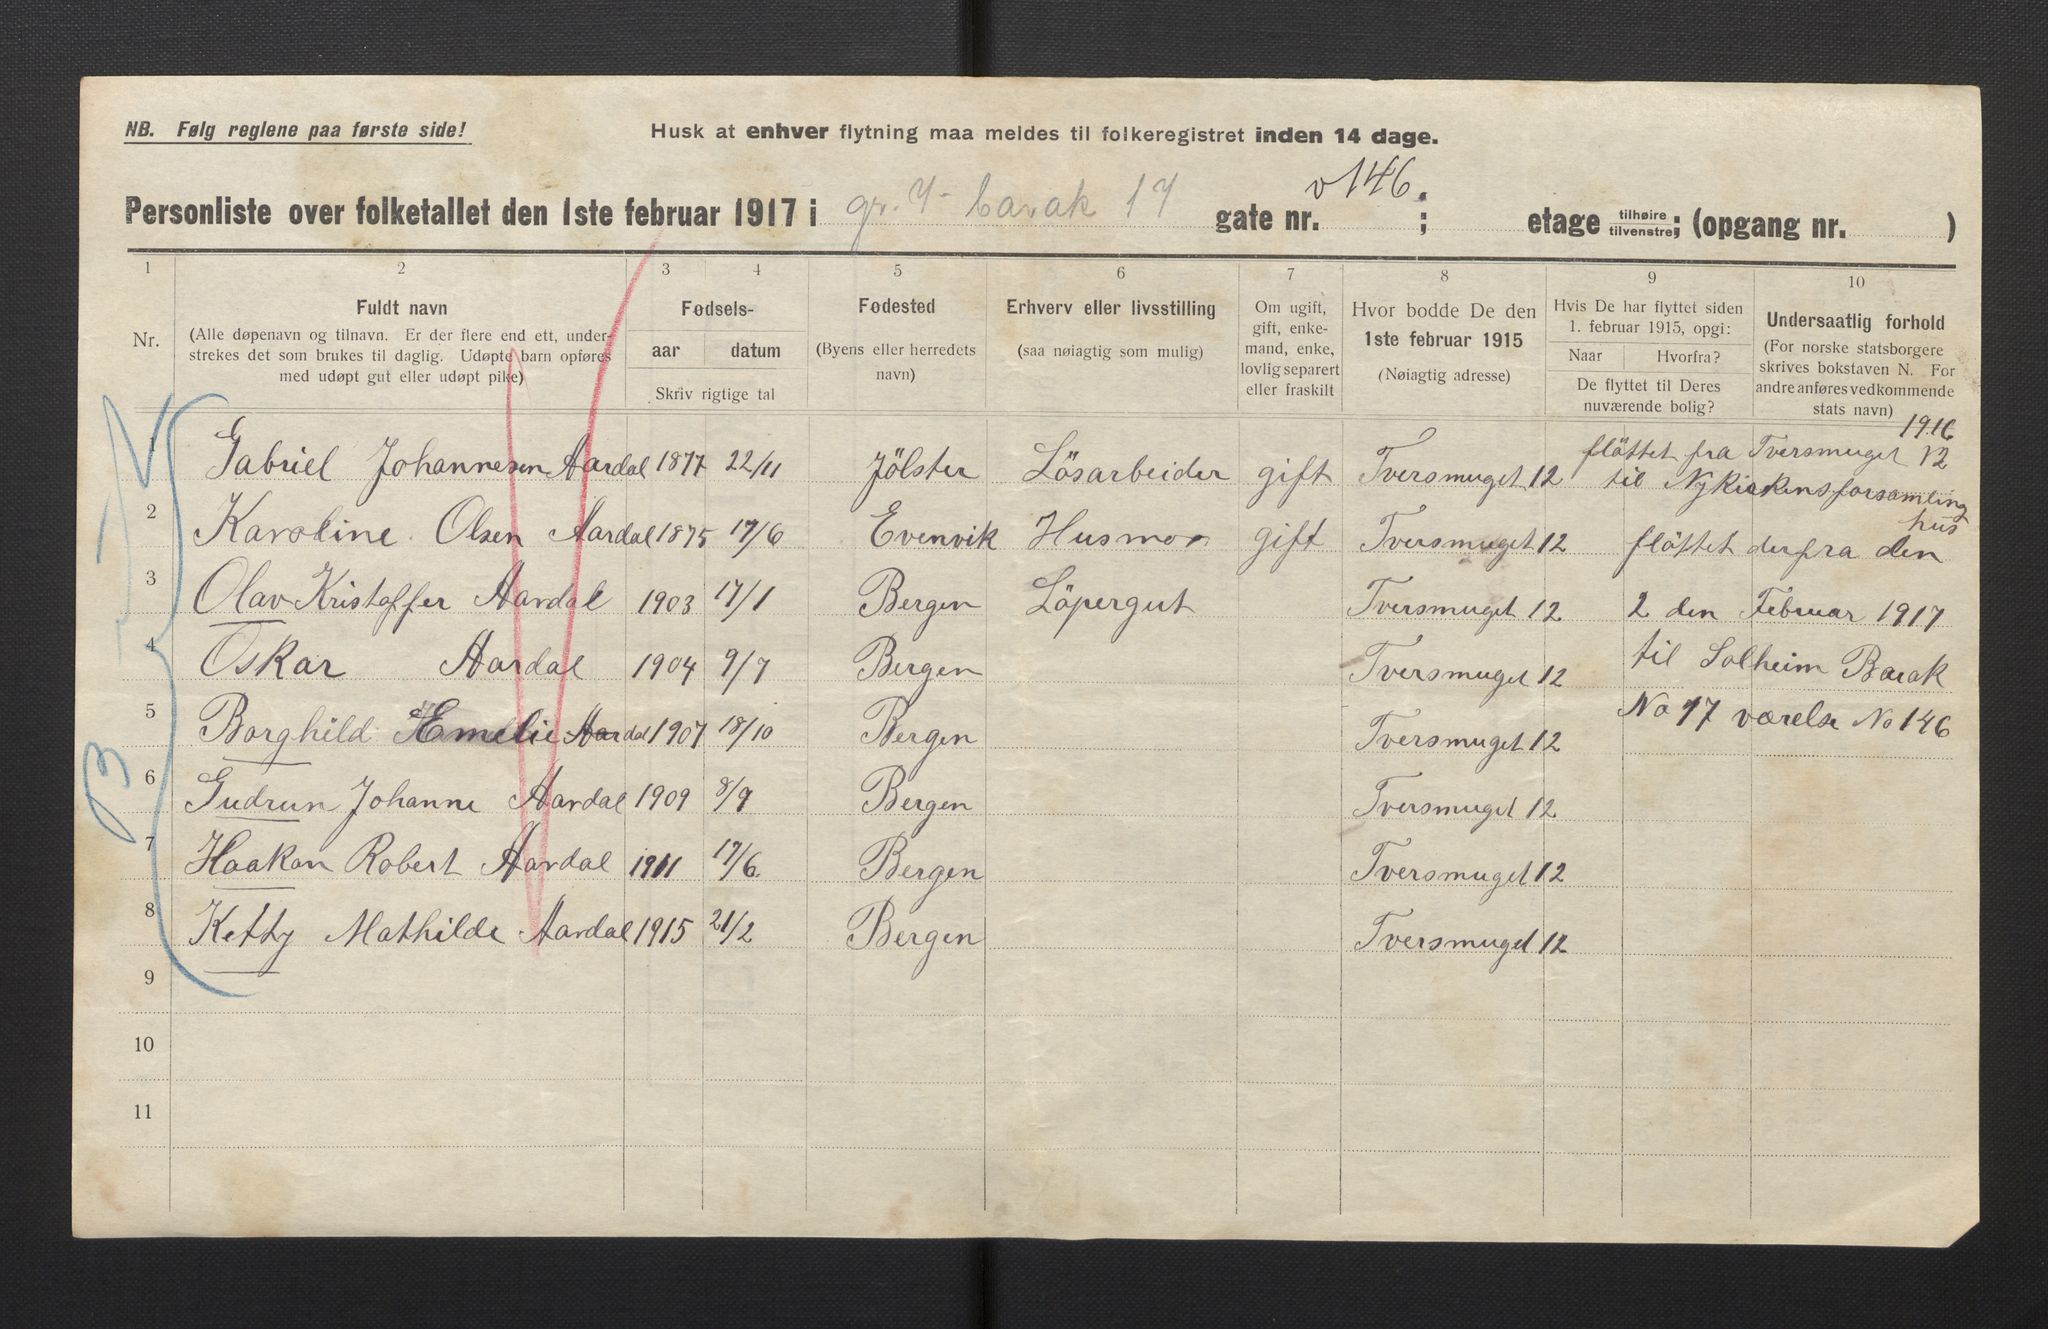 NB. Følg reglene paa første side!
Husk at enhver flytning maa meldes til folkeregistret inden 14 dage.
Personliste over folketallet den 1ste februar 1917 i gr. 7 - barak 17 gate nr. v 146. ; etage tilhøire tilvenstre; (opgang nr. )
1 2 3 4 5 6 7 8 9 10
Nr.
Fuldt navn
(Alle døpenavn og tilnavn. Er der flere end ett, under-
strekes det som brukes til daglig. Udøpte barn opføres
med udøpt gut eller udøpt pike)
Fødsels-
aar datum
Skriv rigtige tal
Fødested
(Byens eller herredets
navn)
Erhverv eller livsstilling
(saa nøiagtig som mulig)
Om ugift,
gift, enke-
mand, enke,
lovlig separert
eller fraskilt
Hvor bodde De den
1ste februar 1915
(Nøiagtig adresse)
Hvis De har flyttet siden
1. februar 1915, opgi:
Naar Hvorfra?
De flyttet til Deres
nuværende bolig?
Undersaatlig forhold
(For norske statsborgere
skrives bokstaven N. For
andre anføres vedkommende
stats navn)
1916
1 Gabriel Johannesen Aardal 1877 22/11 Jölster Lösarbeider gift Tversmuget 12 flöttet fra Tversmuget 12
til Nykirkens forsamling
hus
2 Karoline Olsen Aardal 1875 17/6 Evenvik Husmor gift Tversmuget 12 flöttet derfra den
3 Olav Kristoffer Aardal 1903 17/1 Bergen Löpergut Tversmuget 12 2 den Februar 1917
4 Oskar Aardal 1904 9/7 Bergen Tversmuget 12 til Solheim Barak
5 Borghild Emelie Aardal 1907 18/10 Bergen Tversmuget 12 No 17 værelse No 146
6 Gudrun Johanne Aardal 1909 8/9 Bergen Tversmuget 12
7 Haakon Robert Aardal 1911 17/6. Bergen Tversmuget 12
8 Ketty Mathilde Aardal 1915 21/2 Bergen Tversmuget 12
9
10
11